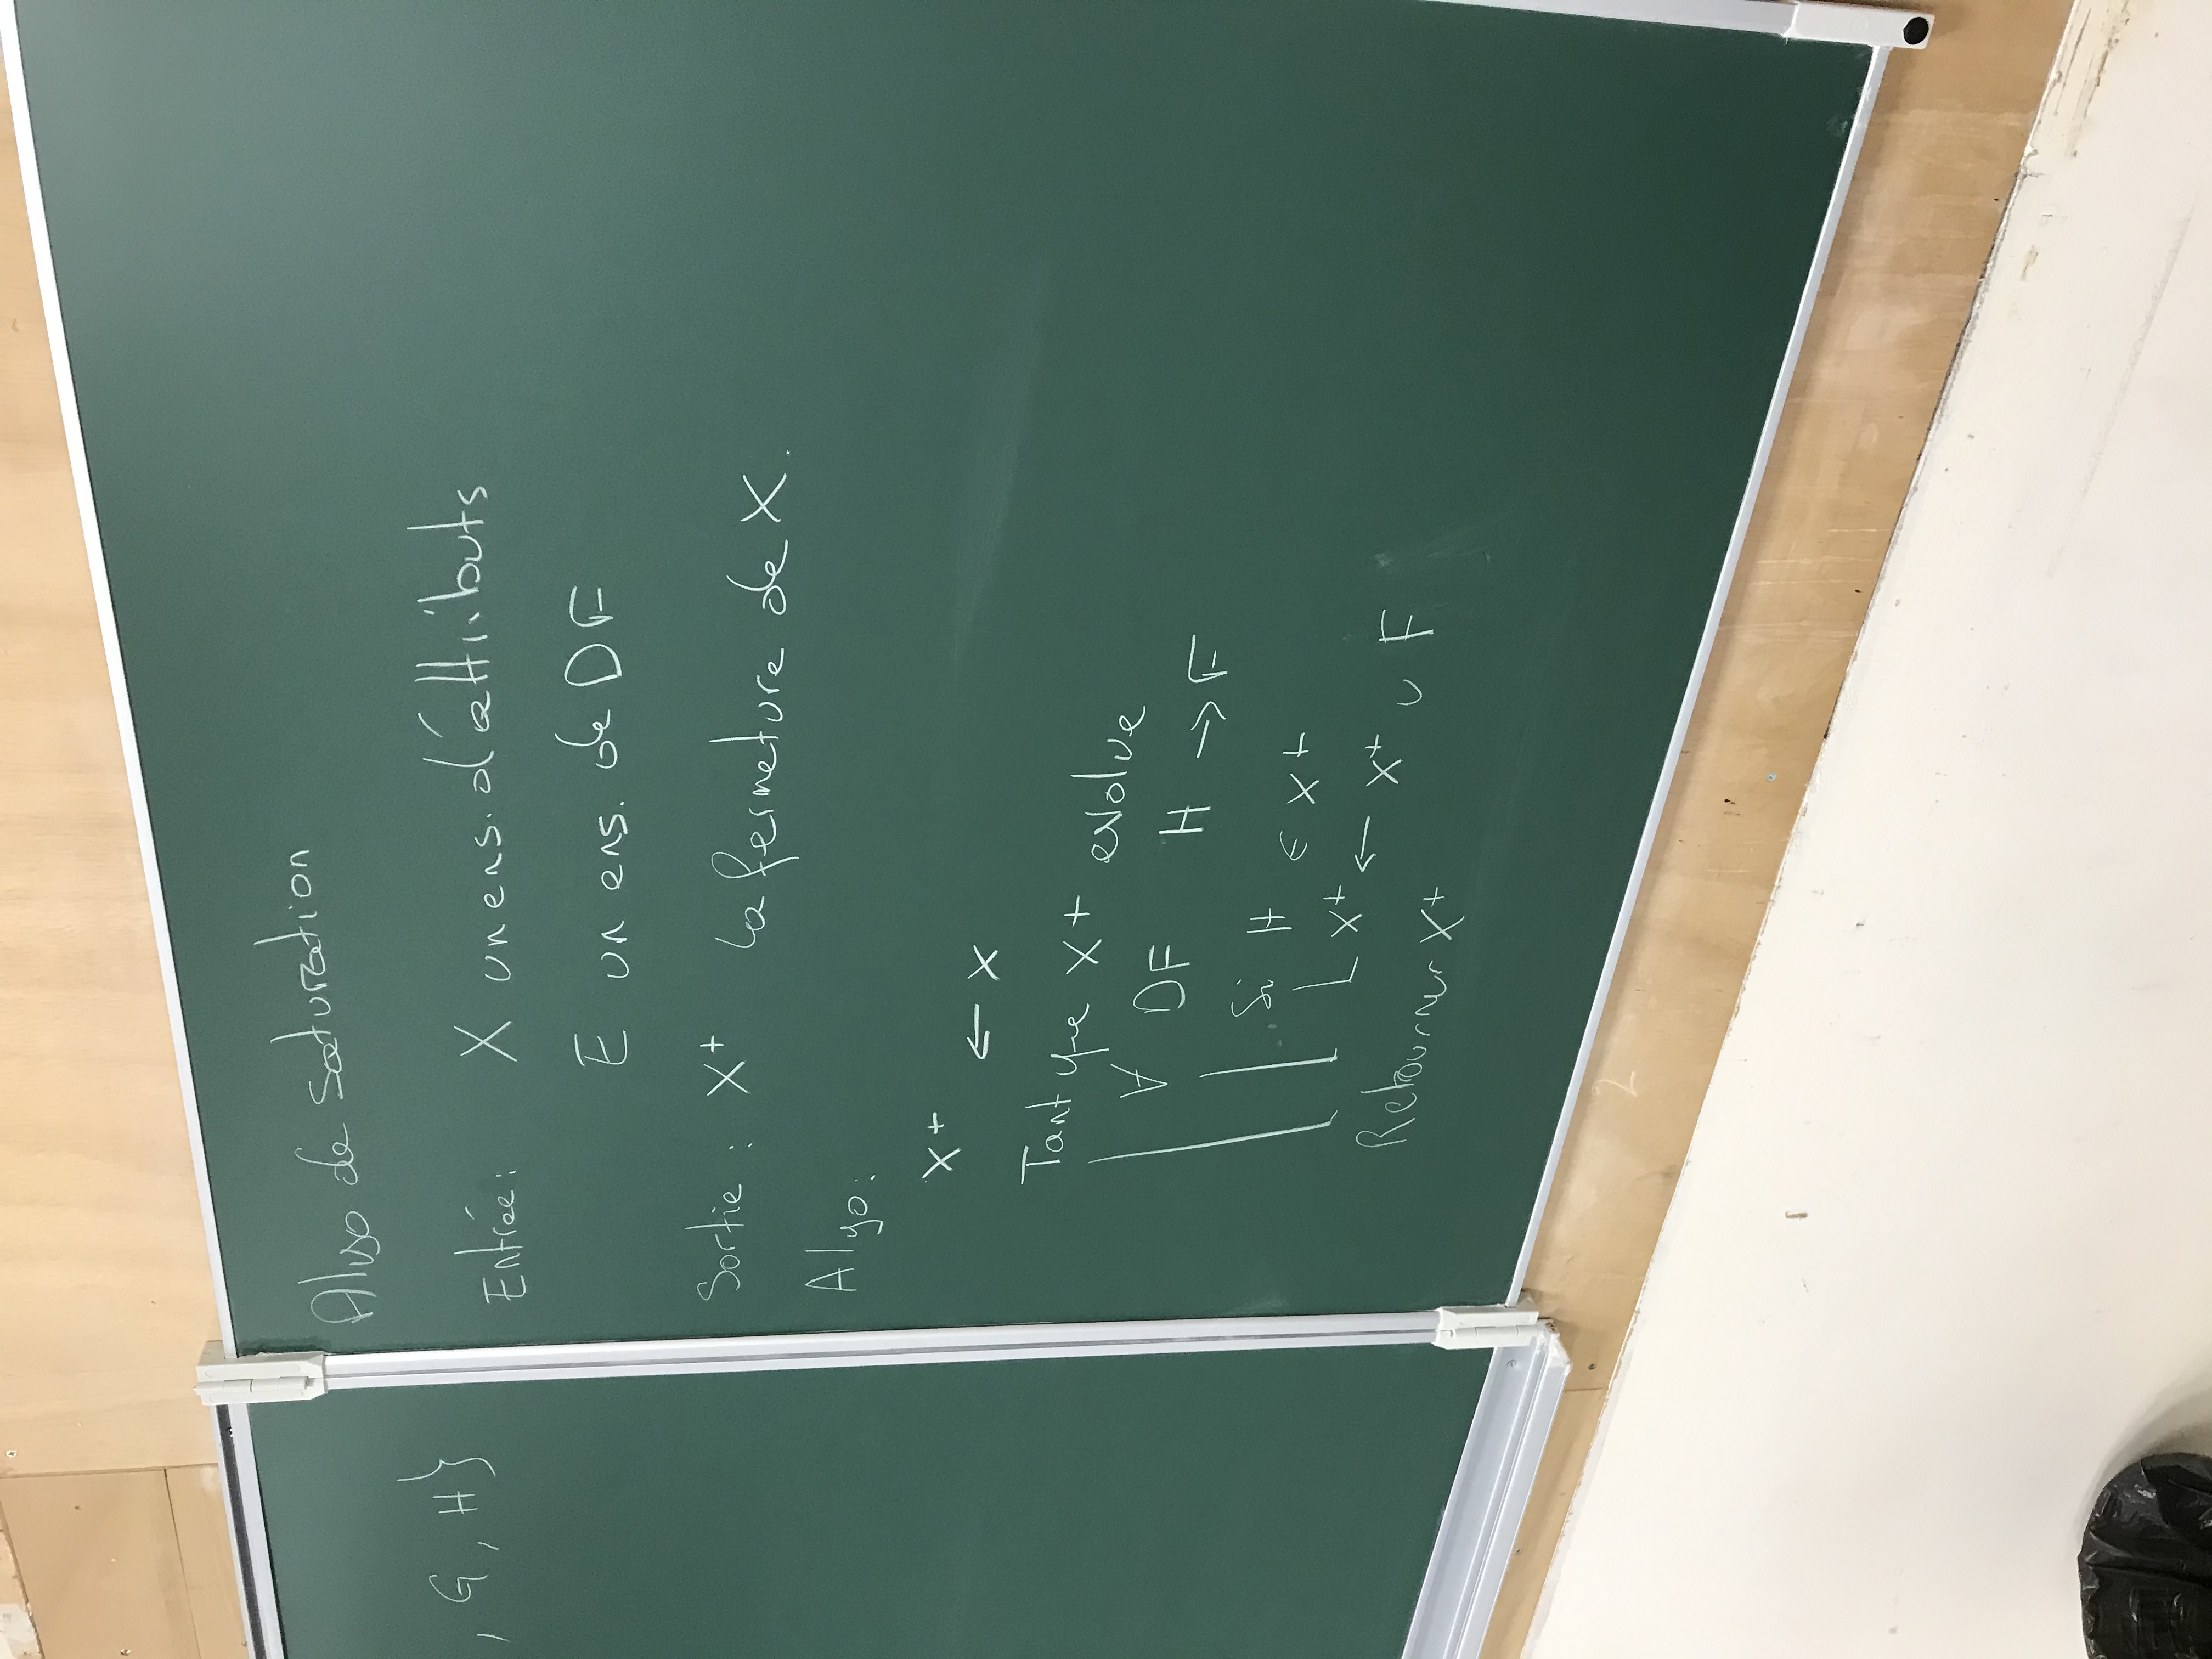 , G, H}
Algo de saturation
Entrée: X un ens. d'attributs
E un ens. de DF
Sortie : X+ la fermeture de X.
Algo:
X+ ← X
Tant que X+ evolue
∀ DF H → F
Si H ∈ X+
X+ ← X+ ∪ F
Retourner X+
2